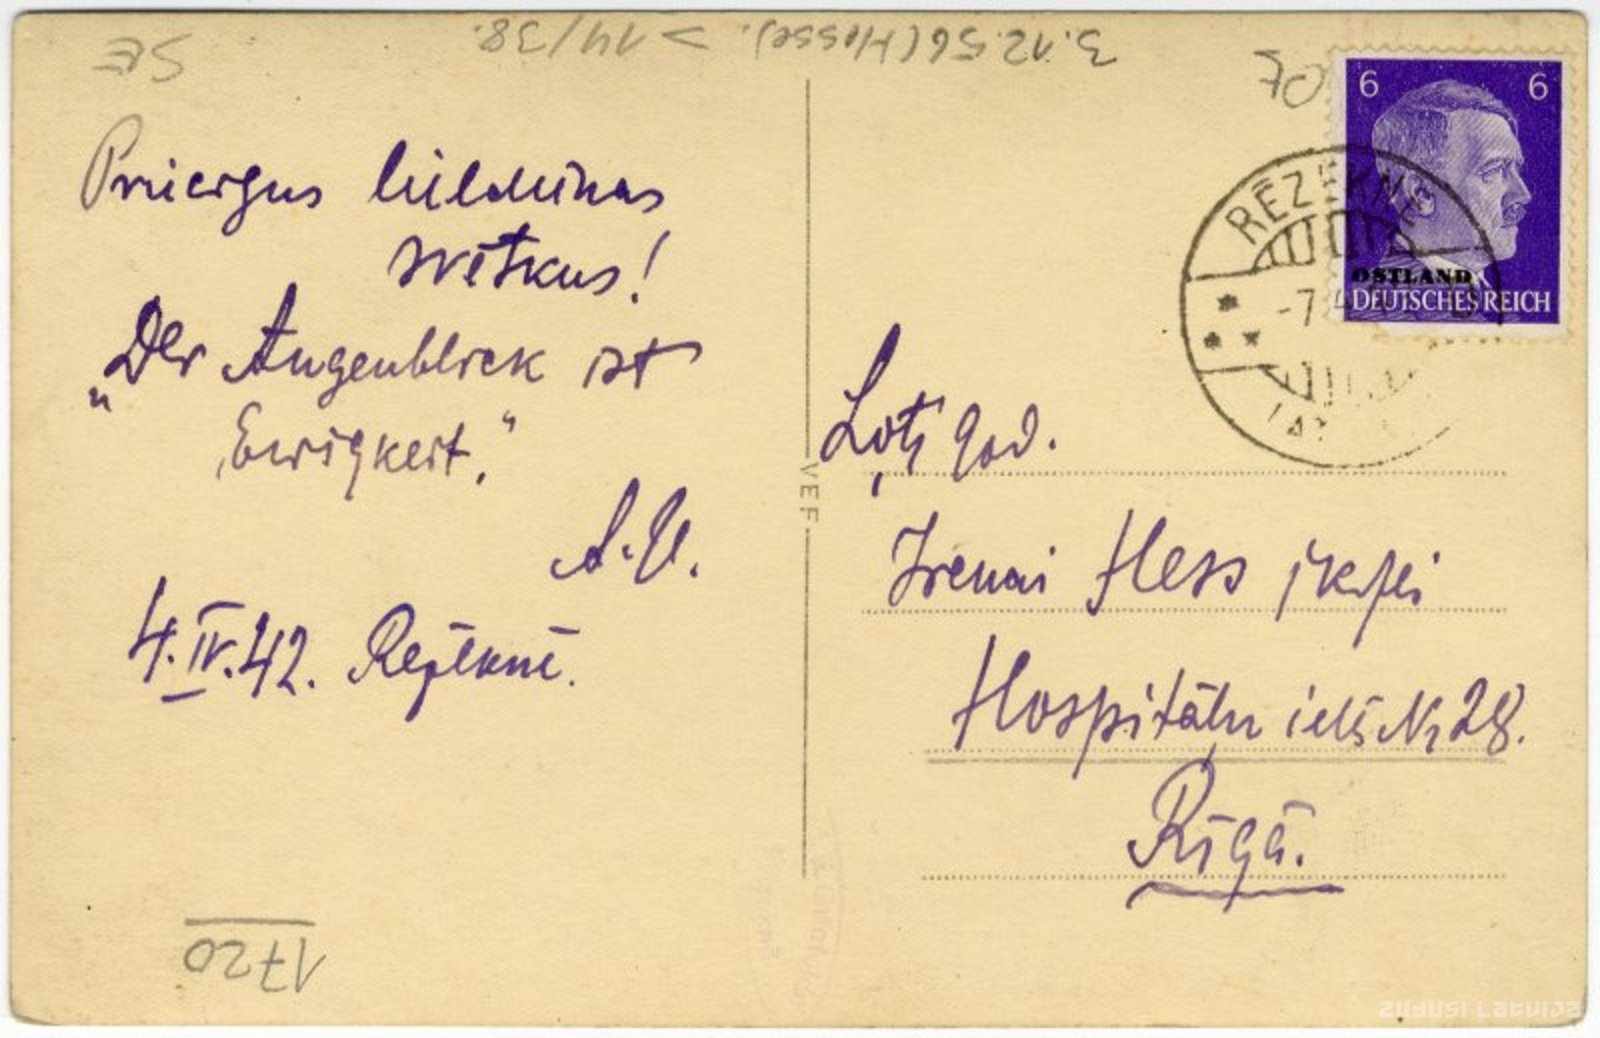 SE
3.12.56 (Hesse). > 14/38.
Priecīgus
swētkus!
„Der Augenblick ist
Ewigkeit."
A.U.
4.IV.42. Rezekne.
1720
VEF
6 6
OSTLAND
DEUTSCHES REICH
RĒZEKNE
-7.4
Ļoti god.
Irenai Hess jkdzei
Hospitāļu ielā Nr 28.
Rīgā.
zudusi Latvija